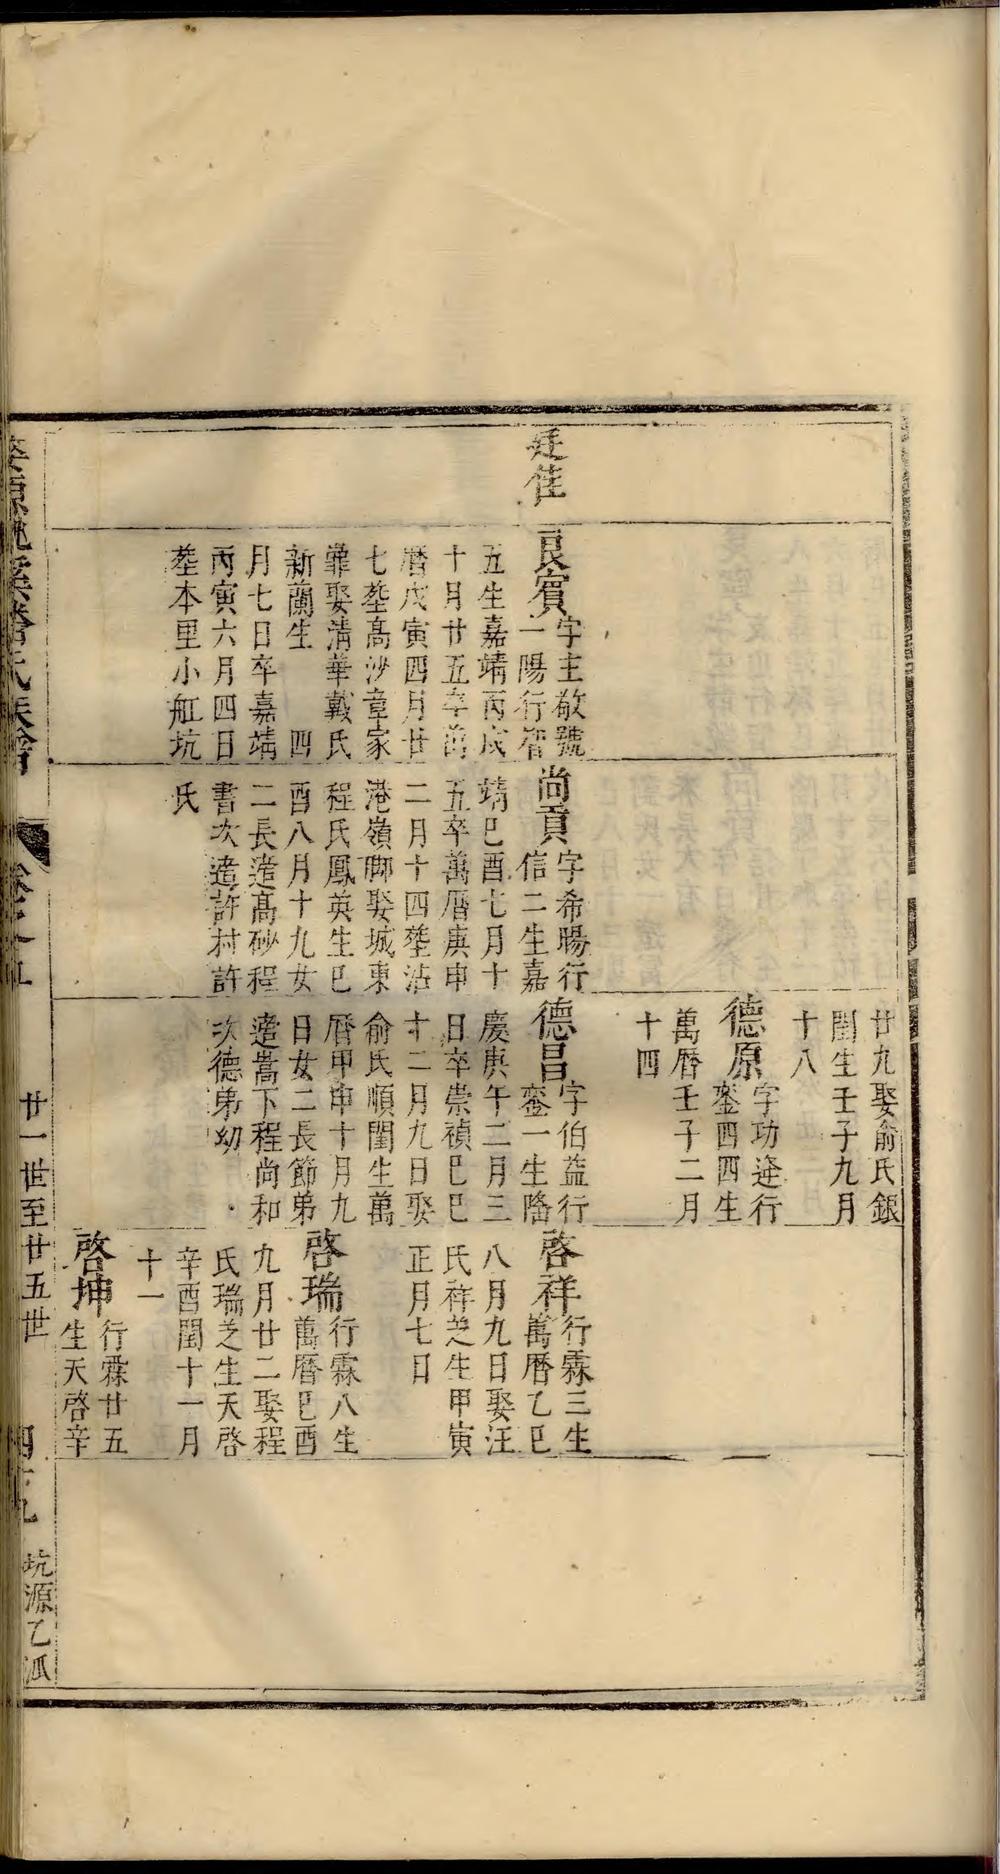 廷佳
良賓
字主敬號
一陽行智
五生嘉靖丙戌
十月廿五卒萬
曆戊寅四月廿
七塟高沙章家
娶清華戴氏
新蘭生 四
月七日卒嘉靖
丙寅六月四日
塟本里小舡坑
尚貢
字希暘行
信二生嘉
靖巳酉七月十
五卒萬曆庚申
二月十四塟沾
港嶺脚娶城東
程氏鳳英生巳
酉八月十九女
二長適高砂程
書次適許村許
氏
廿九娶俞氏銀
閏生壬子九月
十八
德原
字功逹行
鎣四四生
萬曆壬子二月
十四
德昌
字伯益行
鎣一生隆
慶庚午二月三
日卒崇禎巳巳
十二月九日娶
俞氏順閏生萬
曆甲申十月九
日女二長節弟
適嵩下程尚和
次德弟幼
啓祥
行霖三生
萬曆乙巳
八月九日娶汪
氏祥芝生甲寅
正月七日
啓瑞
行霖八生
萬曆巳酉
九月廿二娶程
氏瑞芝生天啓
辛酉閏十一月
十一
啓坤
行霖廿五
生天啓辛
廿一世至廿五世
四十九
坑源乙派